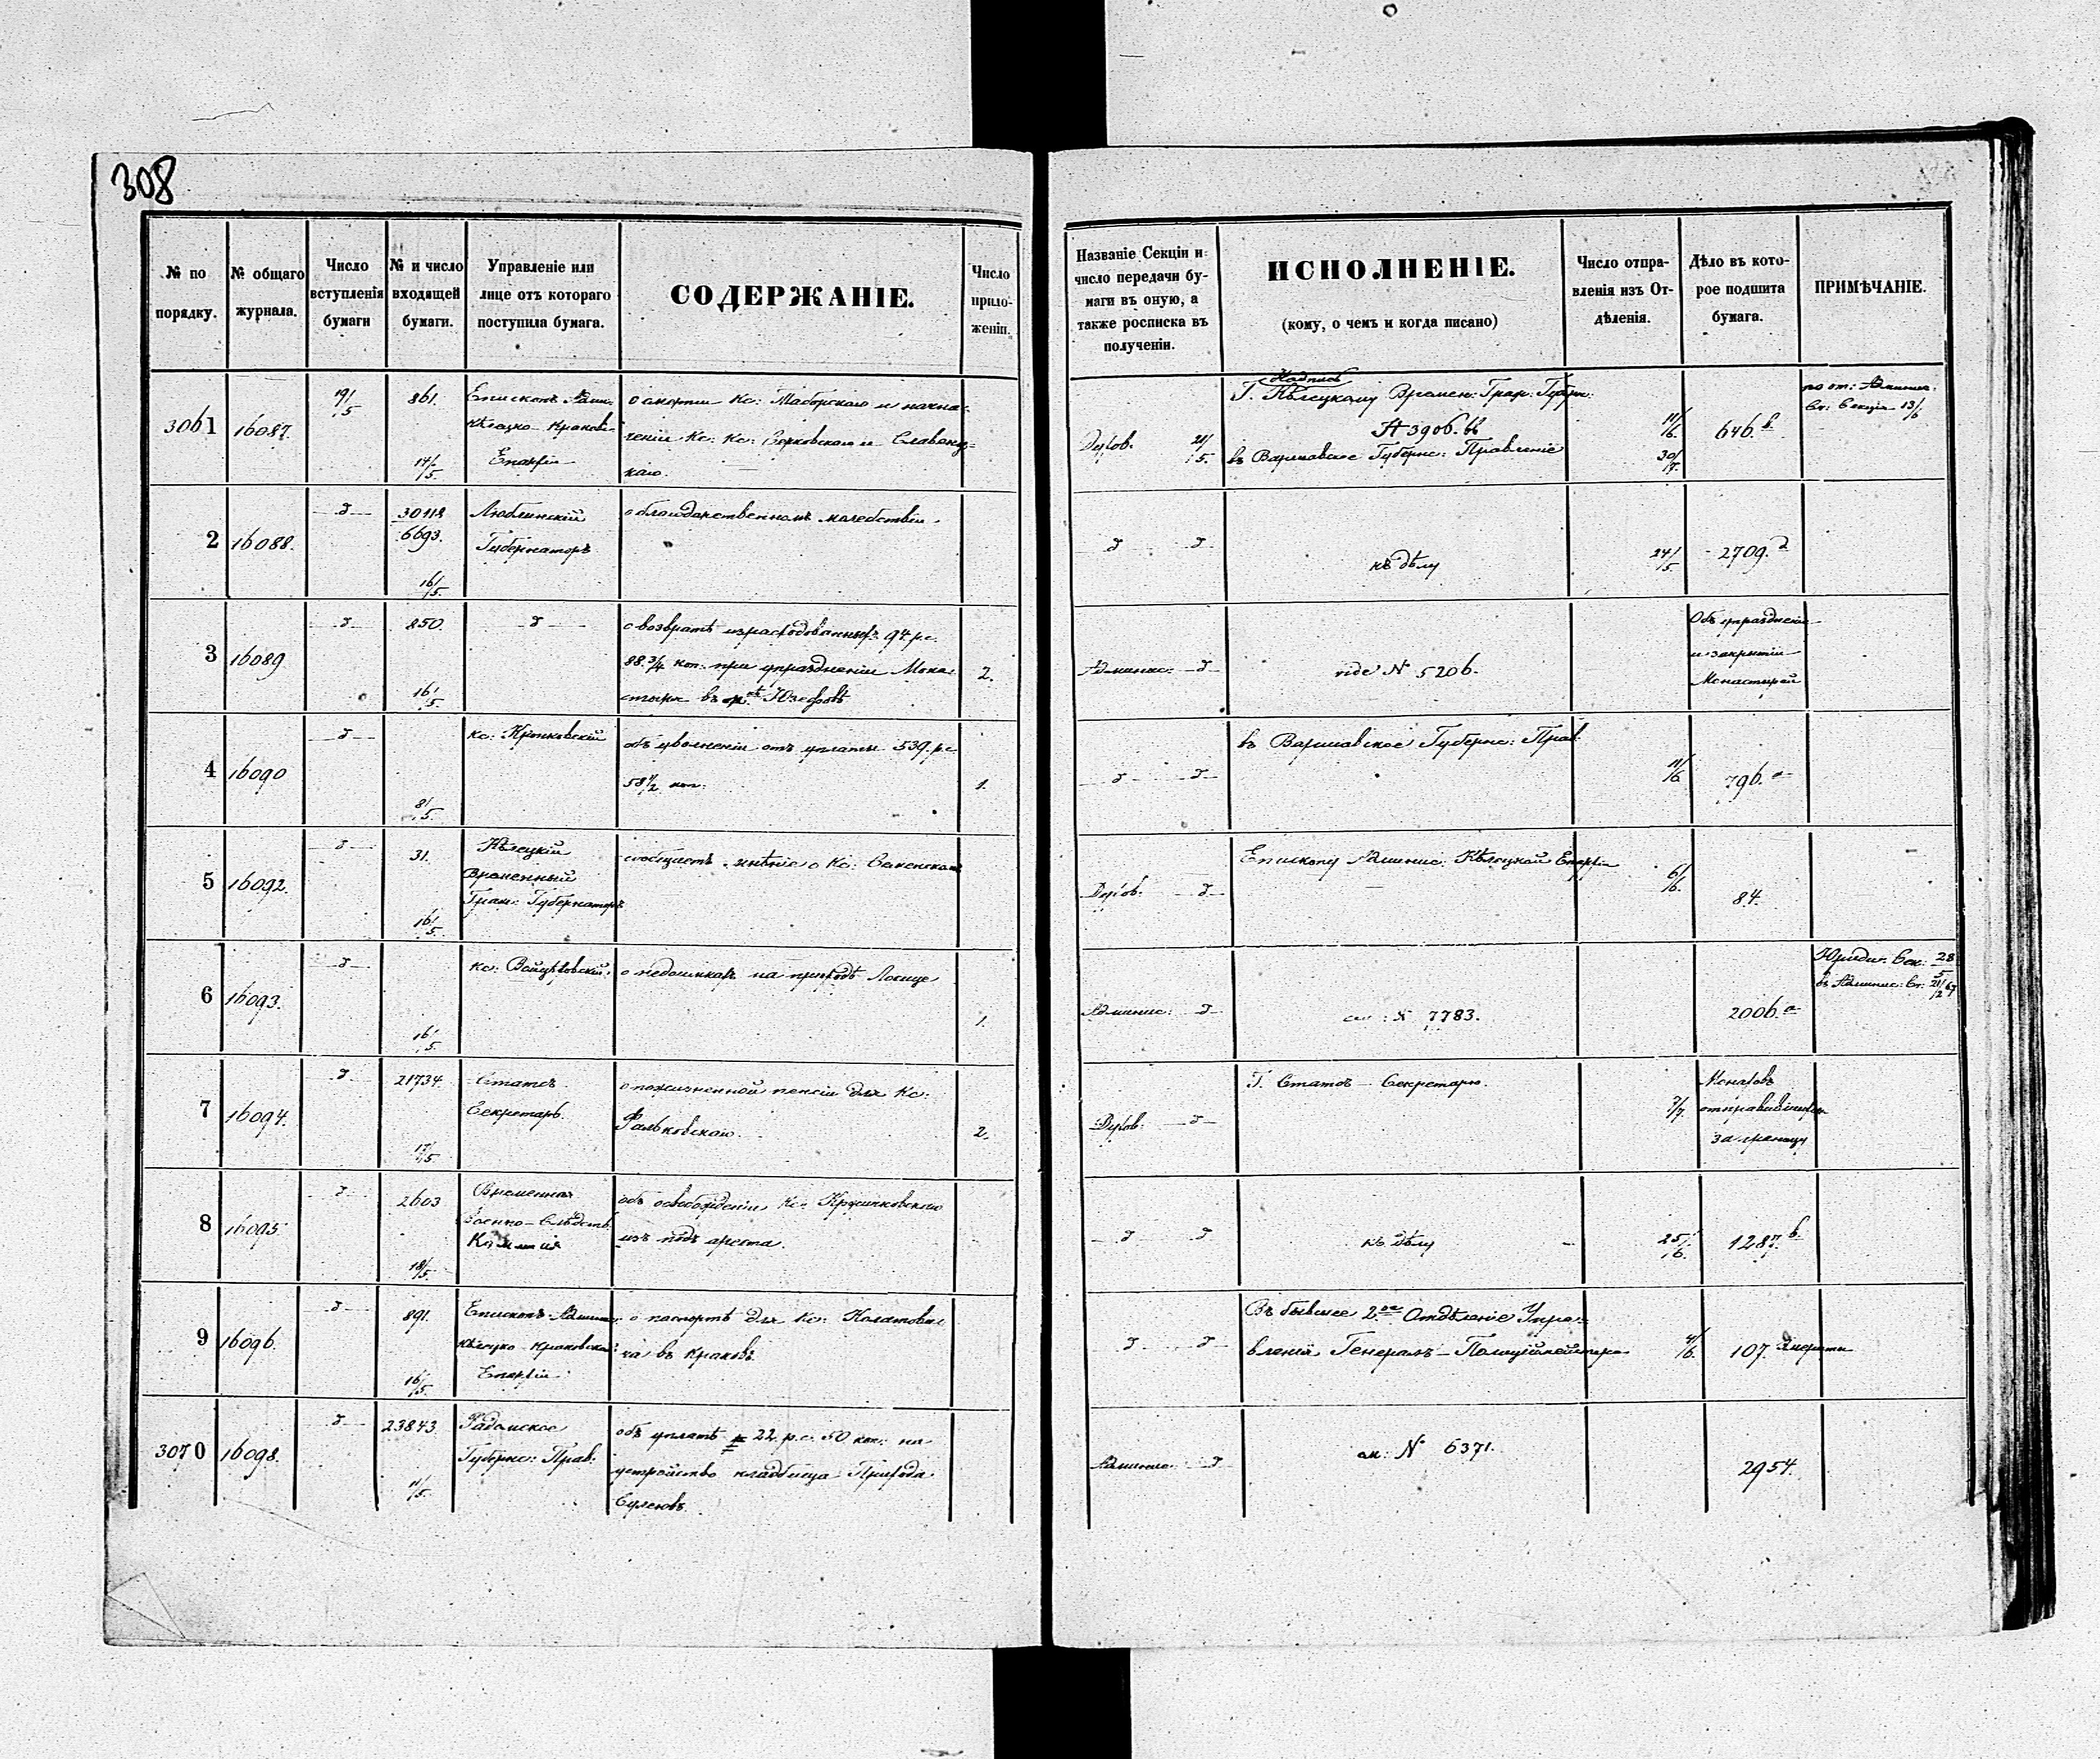 308
№ по порядку.
№ общаго журнала.
Число вступленія бумаги
№ и число входящей бумаги.
Управленіе или лице отъ котораго поступила бумага.
СОДЕРЖАНІЕ.
Число приложеній.
Названіе Секціи и число передачи бумаги въ оную, а также росписка въ полученіи.
ИСПОЛНЕНІЕ.
(кому, о чемъ и когда писано)
Число отправленія изъ Отдѣленія.
Дѣло въ которое подшита бумага.
ПРИМѢЧАНІЕ.
3061
16087.
19/5
861.
14/5
Епископъ Админ:
Кѣлецко-Краковс:
Епархіи
о смерти Кс: Таборскаго и назна-
ченіи Кс: Кс:
каго.
Духов. 21/5.
Надпись
Г. Кѣлецкому Времен: Граж: Губерн:
№ 3906.
въ Варшавское Губернс: Правленіе
11/6.
30/7.
646. b
по от: Админис.
Ст: Секція 13/6
2
16088.
30112
6693.
16/5.
Люблинскій
Губернаторъ
о благодарственномъ молебствіи.
къ дѣлу
24/5.
2709. d
3
16089
850.
16/5.
о возвратѣ израсходованныхъ 94 р. с.
88 3/4 коп: при упраздненіи Мона-
стыря въ Юзефовѣ
2.
Админис:
vide № 5206.
Объ упраздненіи
и закрытіи
Монастырей
4
16090
8/5.
кс: Крыжковскій
объ увольненіи отъ уплаты 539. р. с.
58 1/2 коп:
1.
въ Варшавское Губернс: Прав:
11/6.
796. a
5
16092.
31.
16/5.
Кѣлецкій
Временный
Граж: Губернаторъ
сообщаетъ мнѣніе о Кс:
Духов.
Епископу Админис: Кѣлецкой Епархіи
6/6.
84.
6
16093.
16/5.
кс:
о недоимкахъ на приходѣ Лосице
1.
Админис:
см: № 7783.
2006. a
Юридич. Сек: 28/5
въ Админис: Ст: 21/2 67
7
16094.
21734.
17/5.
Статсъ
Секретарь.
о пожизненной пенсіи для Кс:
Фальковскаго.
2.
Духов:
Г. Статсъ-Секретарю.
7/7.
Монаховъ
отправившихся
за границу
8
16095.
2603
18/5.
Временная
Военно-Слѣдств.
Комиссія
объ освобожденіи Кс:
изъ подъ ареста.
къ дѣлу
25/6.
1287. b.
9
16096.
891.
16/5.
Епископъ Админис:
Кѣлецко-Краковской
Епархіи
о паспортѣ для Кс:
ча въ Краковъ.
Въ бывшее 2ое Отдѣленіе Упра-
вленія Генералъ-Полиціймейстера
4/6.
107.
3070
16098.
23843
11/5.
Радомское
Губернс: Прав:
объ уплатѣ 22 р. с. 50 коп: на
устройство кладбища Прихода
Сулеювъ.
Админис:
см: № 6371.
2954.